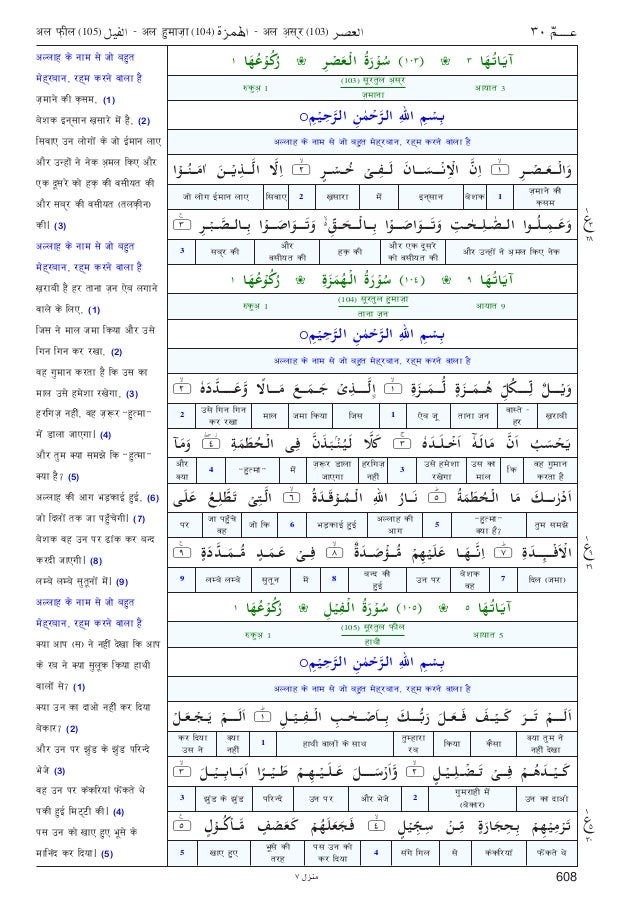 अल फ़ील (105) الفيل - अल हुमाज़ा (104) الهمزة - अल अ़स्र (103) العصر
عـــمّ ٣٠
अल्लाह के नाम से जो बहुत
मेहरबान, रहम करने वाला है
ज़माने की क़सम, (1)
बेशक इन्सान ख़सारे में है, (2)
सिवाए उन लोगों के जो ईमान लाए
और उन्हों ने नेक अ़मल किए और
एक दूसरे को हक़ की वसीयत की
और सब्र की वसीयत (तलक़ीन)
की। (3)
अल्लाह के नाम से जो बहुत
मेहरबान, रहम करने वाला है
ख़राबी है हर ताना ज़न ऐब लगाने
वाले के लिए, (1)
जिस ने माल जमा किया और उसे
गिन गिन कर रखा, (2)
वह गुमान करता है कि उस का
माल उसे हमेशा रखेगा, (3)
हरगिज़ नहीं, वह ज़रूर "हुत्मा"
में डाला जाएगा। (4)
और तुम क्या समझे कि "हुत्मा"
क्या है? (5)
अल्लाह की आग भड़काई हुई, (6)
जो दिलों तक जा पहुँचेगी। (7)
बेशक वह उन पर ढांक कर बन्द
करदी जाएगी। (8)
लम्बे लम्बे सुतूनों में। (9)
अल्लाह के नाम से जो बहुत
मेहरबान, रहम करने वाला है
क्या आप (स) ने नहीं देखा कि आप
के रब ने क्या सुलूक किया हाथी
वालों से? (1)
क्या उन का दाओ नहीं कर दिया
बेकार? (2)
और उन पर झुंड के झुंड परिन्दे
भेजे (3)
वह उन पर कंकरियां फेंकते थे
पकी हुई मिट्टी की। (4)
पस उन को खाए हुए भूसे के
मानिंद कर दिया। (5)
اٰيَاتُهَا ٣ ❀ (١٠٣) سُوْرَةُ الْعَصْرِ ❀ رُكُوْعُهَا ١
रुकुअ़ 1 (103) सूरतुल अ़स्र आयात 3
ज़माना
بِسْمِ اللهِ الرَّحْمٰنِ الرَّحِيْمِ
अल्लाह के नाम से जो बहुत मेहरबान, रहम करने वाला है
وَالْعَصْرِ ۙ ١ اِنَّ الْاِنْسَانَ لَفِيْ خُسْرٍ ۙ ٢ اِلَّا الَّذِيْنَ اٰمَنُوْا
जो लोग ईमान लाए | सिवाए | 2 | ख़सारा | में | इन्सान | बेशक | 1 | ज़माने की क़सम
وَعَمِلُوا الصّٰلِحٰتِ وَتَوَاصَوْا بِالْحَقِّ ۙ وَتَوَاصَوْا بِالصَّبْرِ ٣
3 | सब्र की | और वसीयत की | हक़ की | और एक दूसरे को वसीयत की | और उन्हों ने अ़मल किए नेक
اٰيَاتُهَا ٩ ❀ (١٠٤) سُوْرَةُ الْهُمَزَةِ ❀ رُكُوْعُهَا ١
रुकुअ़ 1 (104) सूरतुल हुमाज़ा आयात 9
ताना ज़न
بِسْمِ اللهِ الرَّحْمٰنِ الرَّحِيْمِ
अल्लाह के नाम से जो बहुत मेहरबान, रहम करने वाला है
وَيْلٌ لِّكُلِّ هُمَزَةٍ لُّمَزَةٍ ۙ ١ الَّذِيْ جَمَعَ مَالًا وَّعَدَّدَهٗ ۙ ٢
2 | उसे गिन गिन कर रखा | माल | जमा किया | जिस | 1 | ऐब जू | ताना ज़न | वास्ते - हर | ख़राबी
يَحْسَبُ اَنَّ مَالَهٗٓ اَخْلَدَهٗ ٣ كَلَّا لَيُنْۢبَذَنَّ فِي الْحُطَمَةِ ٤ وَمَآ
और क्या | 4 | "हुत्मा" | में | ज़रूर डाला जाएगा | हरगिज़ नहीं | 3 | उसे हमेशा रखेगा | उस का माल | कि | वह गुमान करता है
اَدْرٰىكَ مَا الْحُطَمَةُ ٥ نَارُ اللهِ الْمُوْقَدَةُ ۙ ٦ الَّتِيْ تَطَّلِعُ عَلَى
पर | जा पहुँचे वह | जो कि | 6 | भड़काई हुई | अल्लाह की आग | 5 | "हुत्मा" क्या है? | तुम समझे
الْاَفْـِٕدَةِ ٧ اِنَّهَا عَلَيْهِمْ مُّؤْصَدَةٌ ۙ ٨ فِيْ عَمَدٍ مُّمَدَّدَةٍ ٩
9 | लम्बे लम्बे | सुतून | में | 8 | बन्द की हुई | उन पर | बेशक वह | 7 | दिल (जमा)
اٰيَاتُهَا ٥ ❀ (١٠٥) سُوْرَةُ الْفِيْلِ ❀ رُكُوْعُهَا ١
रुकुअ़ 1 (105) सूरतुल फ़ील आयात 5
हाथी
بِسْمِ اللهِ الرَّحْمٰنِ الرَّحِيْمِ
अल्लाह के नाम से जो बहुत मेहरबान, रहम करने वाला है
اَلَمْ تَرَ كَيْفَ فَعَلَ رَبُّكَ بِاَصْحٰبِ الْفِيْلِ ١ اَلَمْ يَجْعَلْ
कर दिया उस ने | क्या नहीं | 1 | हाथी वालों के साथ | तुम्हारा रब | किया | कैसा | क्या तुम ने नहीं देखा
كَيْدَهُمْ فِيْ تَضْلِيْلٍ ۙ ٢ وَّاَرْسَلَ عَلَيْهِمْ طَيْرًا اَبَابِيْلَ ۙ ٣
3 | झुंड के झुंड | परिन्दे | उन पर | और भेजे | 2 | गुमराही में (बेकार) | उन का दाओ
تَرْمِيْهِمْ بِحِجَارَةٍ مِّنْ سِجِّيْلٍ ۙ ٤ فَجَعَلَهُمْ كَعَصْفٍ مَّاْكُوْلٍ ٥
5 | खाए हुए | भूसे की तरह | पस उन को कर दिया | 4 | संगे गिल | से | कंकरियां | फेंकते थे
ع ٢٨
ع ٢٩
ع ٣٠
منزل ٧
608